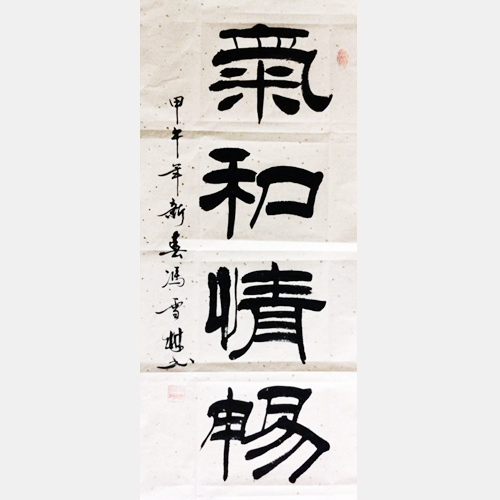 氣和情暢
甲午年新春冯雪林书